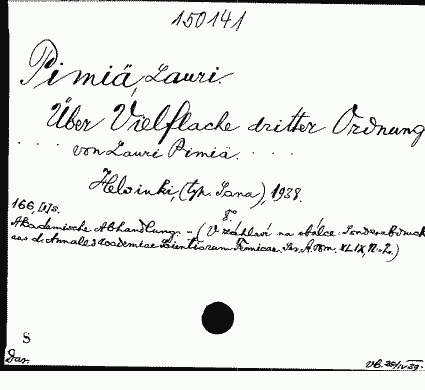 150141
Pimiä, Lauri.
Über Vielflache dritter Ordnung
. . . . . von Lauri Pimiä. . . .
Helsinki, (typ. Sana), 1938.
8°.
166, [1] s.
Akademische Abhandlung. - (V záhlaví na obálce: Sonderabdruck
aus d. Annales Academiae Scientiarum Fennicae. Ser. A. tom. XLIX, N-2.)
S
Dar.